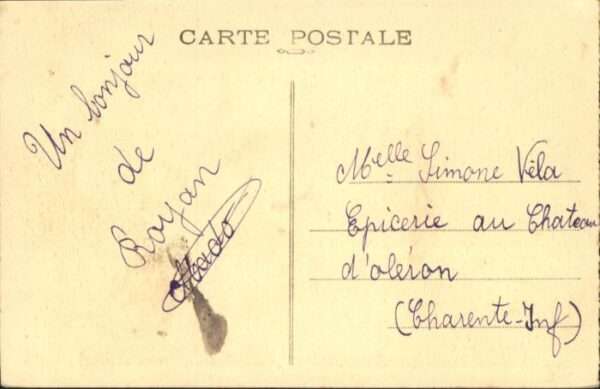 CARTE POSTALE
Un bonjour
de
Royan
Melle Simone Véla
Epicerie au Chateau
d'oléron
(Charente-Inf)